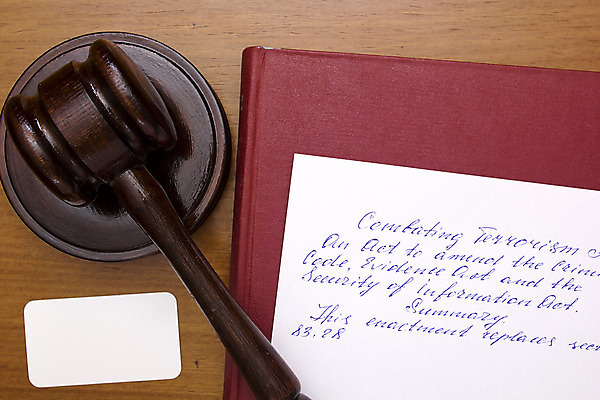 Combating Terrorism
An Act to amend the Crimin
Code, Evidence Act and the
Security of Information Act.
Summary
This enactment replaces sec
83.28